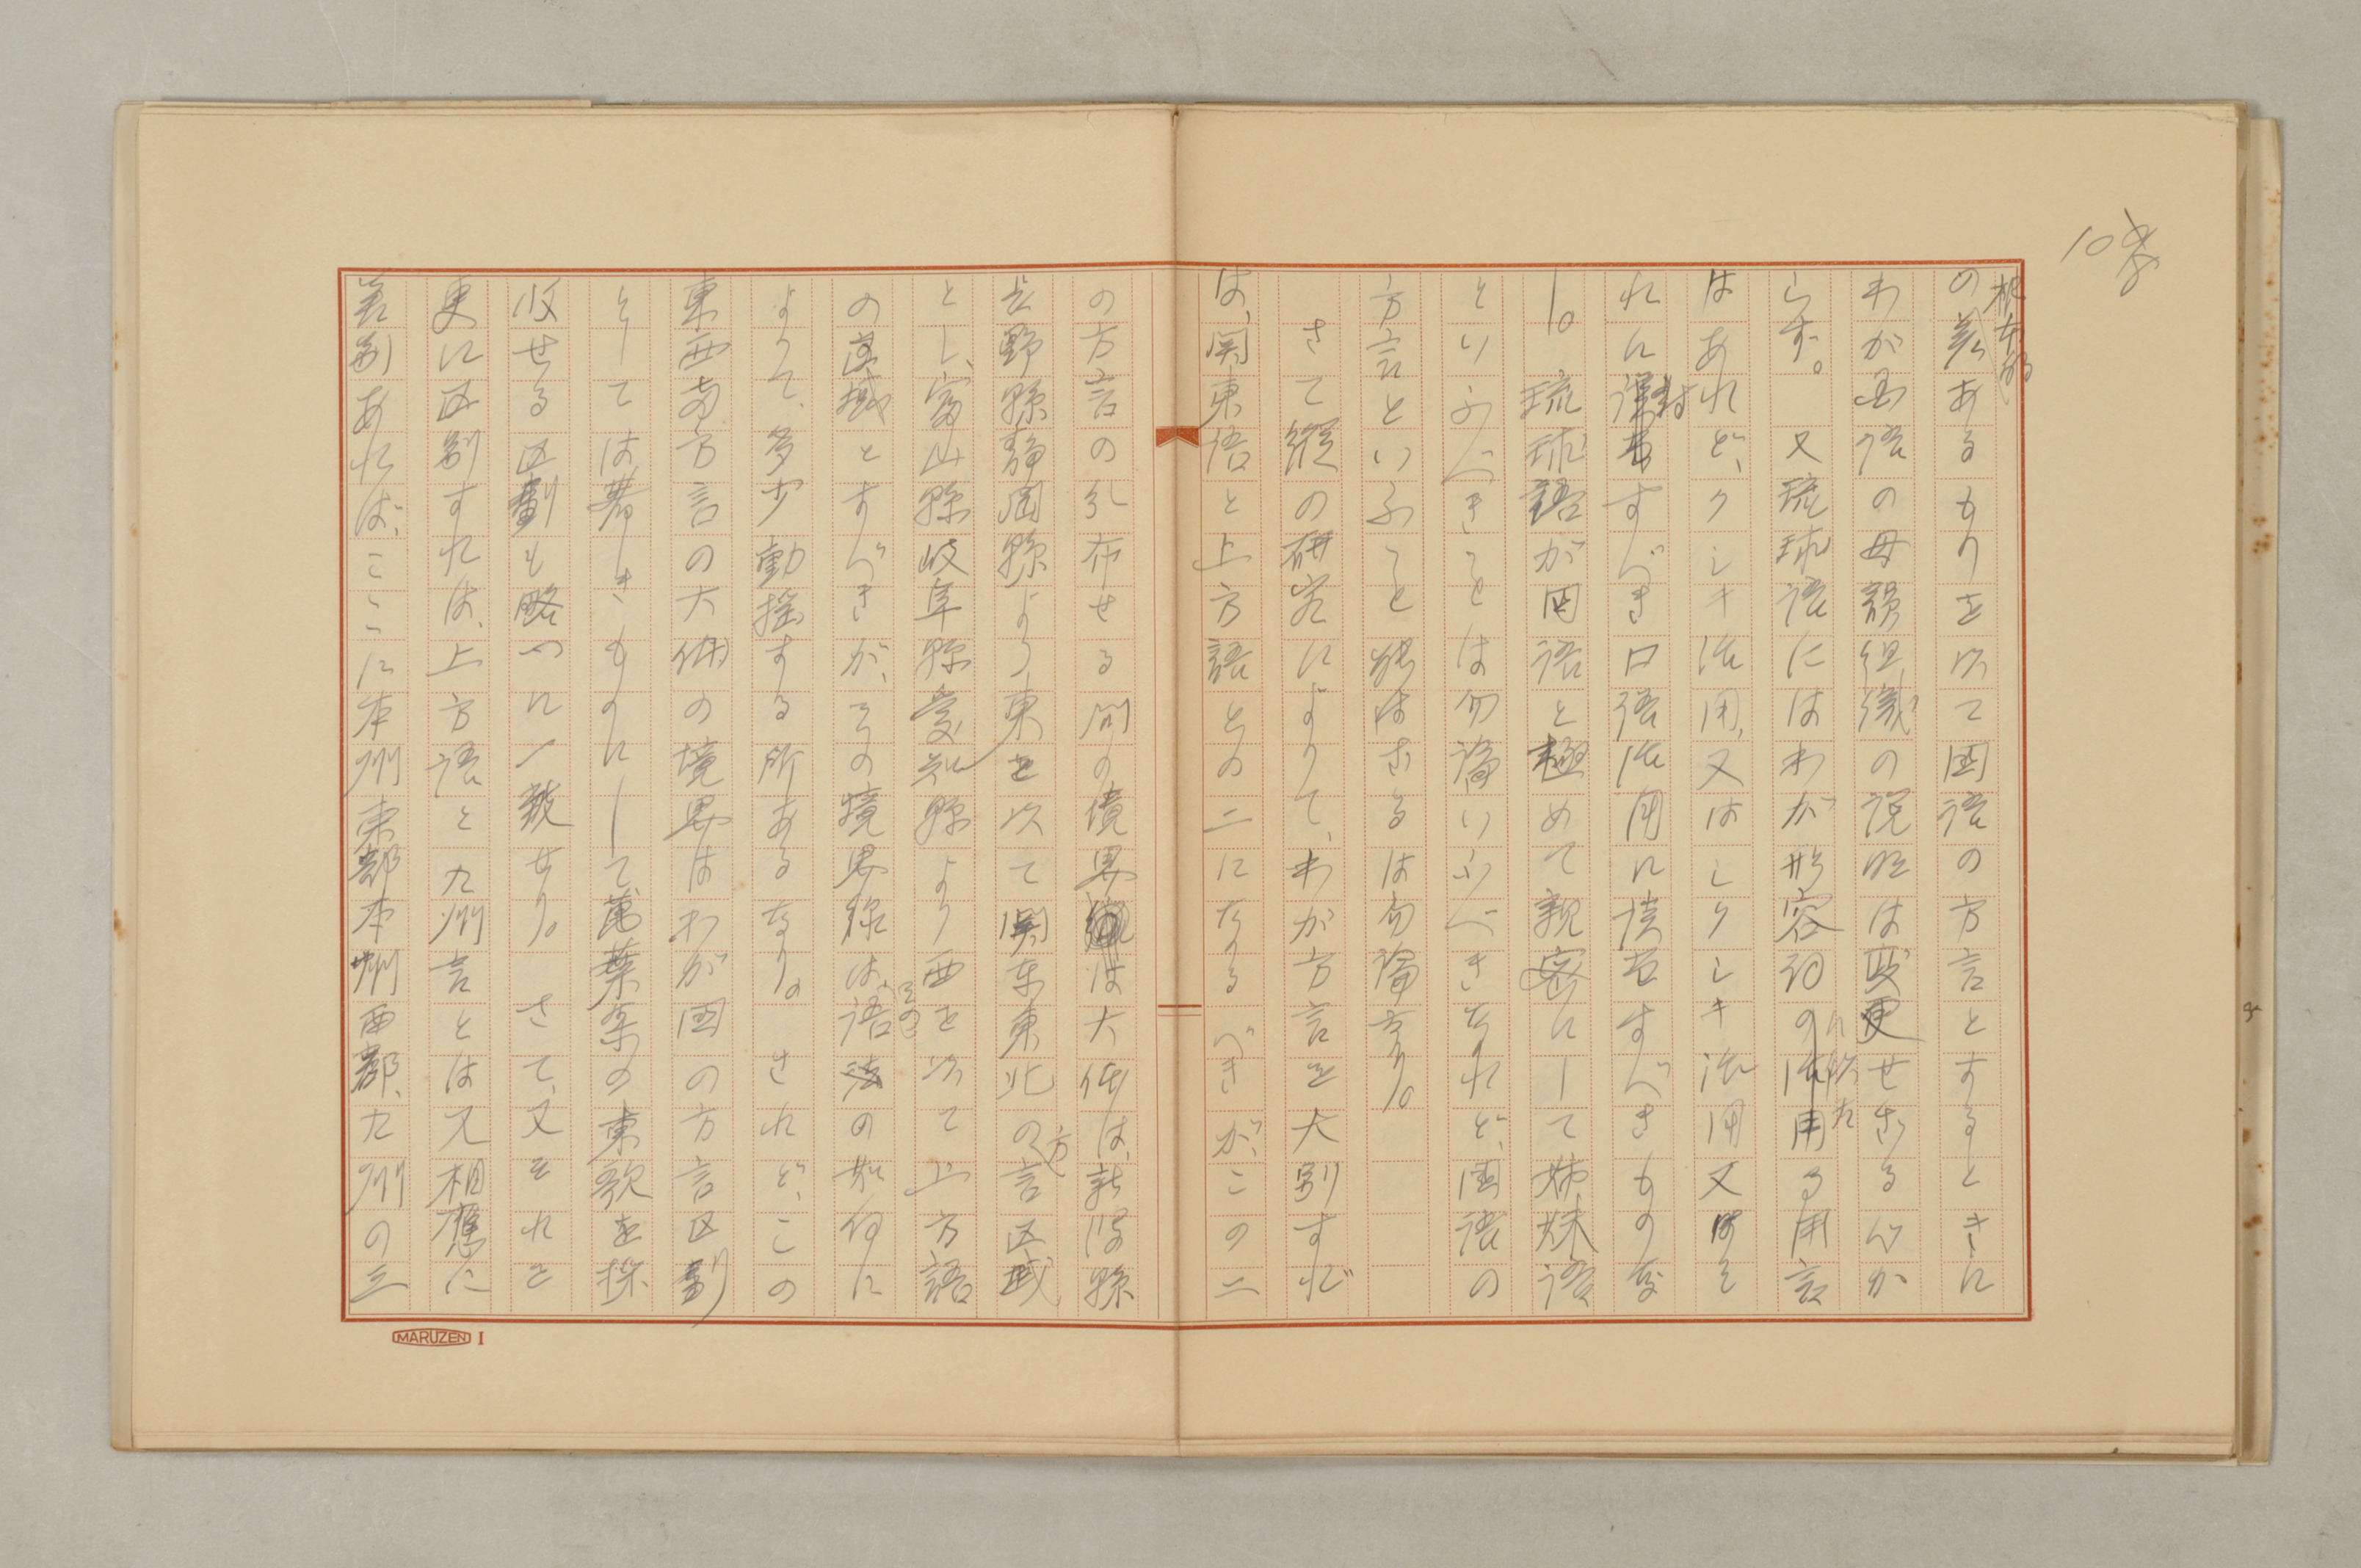 10
根本的
の差あるものを以て国語の方言とするときに
わが国語の母韻組織の説明は変更せざるべか
らず。又琉球語にはわが形容詞の活用に似たる用言
はあれど、クシキ活用、又はシクシキ活用又はそ
れに対すべき口語活用に該当すべきものな
し。琉球語が国語と極めて親密にして姉妹語
といふべきことは勿論いふべきなれど、国語の
方言といふこと能はざるは勿論なり。
さて縦の研究によりて、わが方言を大別すれば
は、関東語と上方語との二になるべきが、この二
の方言の分布せる間の境界は大体は、新潟縣
長野縣静岡縣より東を以て関东東北の方言区域
とし、富山縣岐阜縣愛知縣より西を以て上方語
の区域とすべきが、その境界線は、その語法の如何に
よりて、多少動揺する所あるなり。されど、この
東西両方言の大体の境界はわが国の方言区劃
としては著しきものにして萬葉集の東歌を採
収せる区劃も略々に一致せり。さて、又それを
更に区別すれば、上方語と九州言とは又相應に
差別あれば、ここに本州東部本州西部、九州の三
MARUZEN I